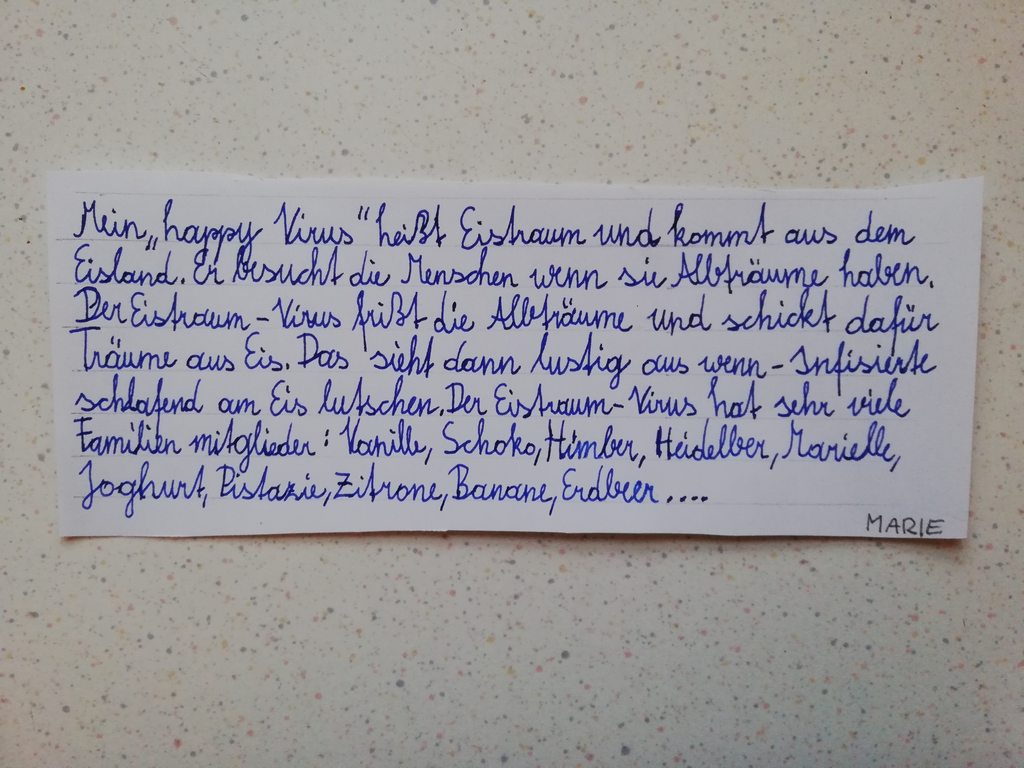 Mein „happy Virus“ heißt Eistraum und kommt aus dem
Eisland. Er besucht die Menschen wenn sie Albträume haben.
Der Eistraum-Virus frißt die Albträume und schickt dafür
Träume aus Eis. Das sieht dann lustig aus wenn - Infisierte
schlafend am Eis lutschen. Der Eistraum-Virus hat sehr viele
Familien mitglieder: Vanille, Schoko, Himber, Heidelber, Marielle,
Joghurt, Pistazie, Zitrone, Banane, Erdbeer....
MARIE